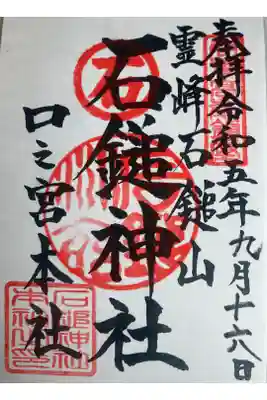 奉拝 令和五年九月十六日
霊峰石鎚山
石鎚神社
口之宮本社
石
石鎚神社
本社之印